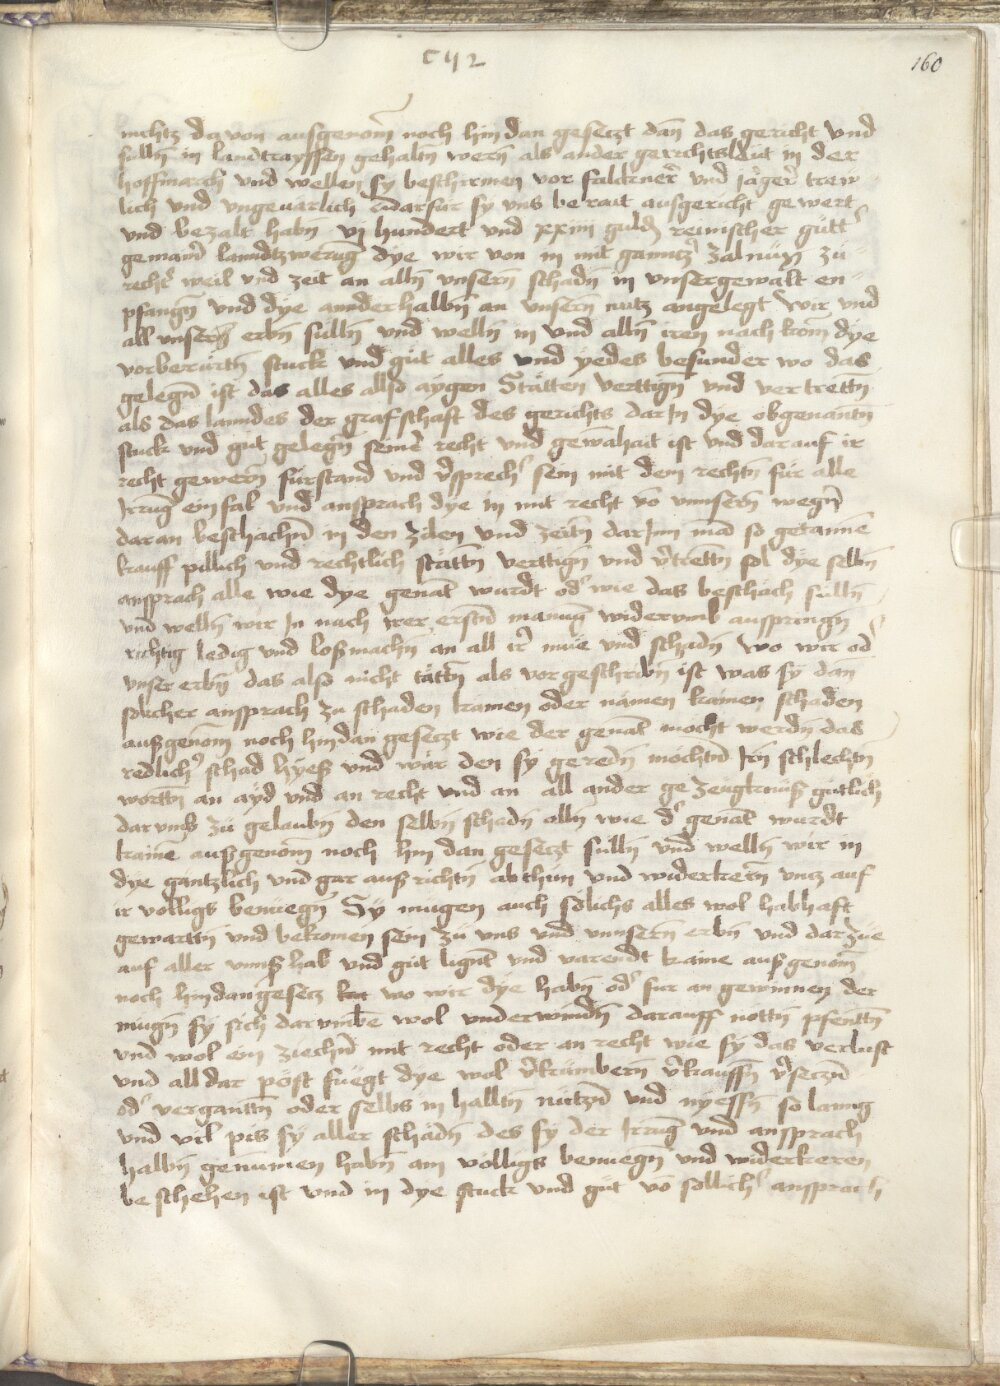 c ij 2
160
nichtz da von ausgenom̄ noch hin dan gesetzt dan̄ das gericht vnd
sulln̄ in landtraysen gehaltn̄ wern̄ als ander gerichtsläut in der
hoffmarch vnd wellen sy beschirmen vor falcknern̄ vnd jägern̄ trew
lich vnd vngeuärlich darfur sy vns berait ausgericht gewert
vnd bezalt habn̄ vj hundert vnd xxiiij guldn̄ reinischer gütt
gemain̄ lanndtzwerung dye wir von in mit ganntz̄ zal nün zu
recht̄ weil vnd zeit an alln̄ vnsern̄ schadn̄ in vnser gewalt en
pfangn̄ vnd dye annderhalbn̄ an vnsern̄ nutz angelegt wir vnd
all vnser erbn̄ sulln̄ vnd welln̄ in vnd alln̄ iren nach kom̄ dye
vorberürtn̄ stuck vnd güt alles vnd yedes besunder wo das
gelegn̄ ist das alles also aygen Stätten verttign̄ vnd vertrettn̄
als das lanndes der grafschaft des gerichts dar In dye obgenantn̄
stuck vnd güt gelegn̄ sein recht vnd gewahait ist vnd darauf ir
recht gewern̄ fürstand vnd v̄sprech̄ sein mit dem rechtn̄ für alle
Irrūg einfal vnd ansprach dye in mit recht vō vnnsern̄ wegn̄
daran beschächn̄ in den zilen vnd zeitn̄ dar Inn mā so getanne
kauff pillich vnd rechtlich stättn̄ verttign̄ vnd v̄trettn̄ sol dye selbn̄
ansprach alle wie dye genāt wurdt od̄ wie das beschäch sülln̄
vnd welln̄ wir In nach irer erstn̄ manung widerumb auspringn̄
richtig ledig vnd losmachn̄ an all ir̄ müe vnd schadn̄ wo wir od̄
vnser erbn̄ das also nicht tättn̄ als vorgeschribn̄ ist was sy dan̄
solcher ansprach zu schaden kämen oder nämen kainen schaden
aussgenom̄ noch hindan gesetzt wie der genāt möcht werdn̄ das
redlich̄ schad hyess vnd wär den sy geredn̄ möchtn̄ Irn̄ schlechtn̄
worttn̄ an ayd vnd an recht vnd an all ander gezeugknüss gütlich
darumb zu gelaubn̄ den selbn̄ schedn̄ alln̄ wie d̄ genāt wurdt
kainē aussgenom̄ noch hin dan gesetzt sulln̄ vnd welln̄ wir in
dye gantzlich vnd gar aussrichtn̄ abthun vnd widerkern̄ vntz auf
ir völligs benüegn̄ Sy mugen auch sölichs alles wol habhaft
gewarttn̄ vnd bekomen sein zu vns vnd vnnsern̄ erbn̄ vnd darzue
auf aller vnnser hab vnd güt ligūt vnd varendt kaine aussgenom̄
noch hindangesetz wo wir dye habn̄ od̄ fur an gewinnen der
mugn̄ sy sich darumbē wol vnderwindn̄ darauff nöttn̄ pfenttn̄
vnd wol ein ziechn̄ mit recht oder an recht wie sy das verlust
vnd all dar pöst füegt dye wol v̄kumbern̄ v̄kauffn̄ v̄setzn̄
od̄ verganttn̄ oder selbs in halltn̄ nützn̄ vnd nyessn̄ so lanng
vnd vil pis sy aller schädn̄ des sy der Irrūg vnd ansprach
halbn̄ genumen habn̄ ain völligs benüegn̄ vnd widerkeren
beschehen ist vnd in dye stuck vnd güt vō sollich̄ ansprach